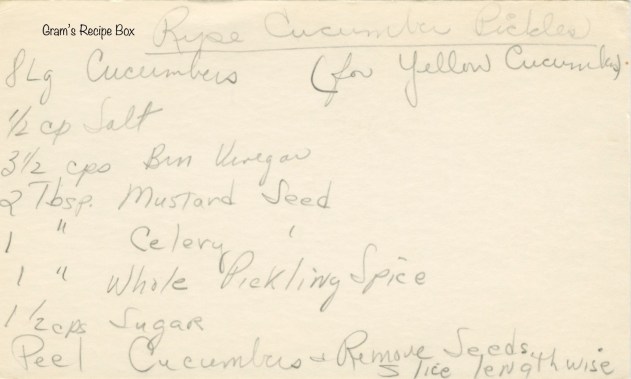 Gram's Recipe Box
Rype Cucumber Pickles
8 Lg Cucumbers (for Yellow Cucumbers)
1/2 cp Salt
3 1/2 cps Brn Vinegar
2 Tbsp. Mustard Seed
1 " Celery "
1 " Whole Pickling Spice
1 1/2 cps Sugar
Peel Cucumbers & Remove Seeds,
Slice lengthwise